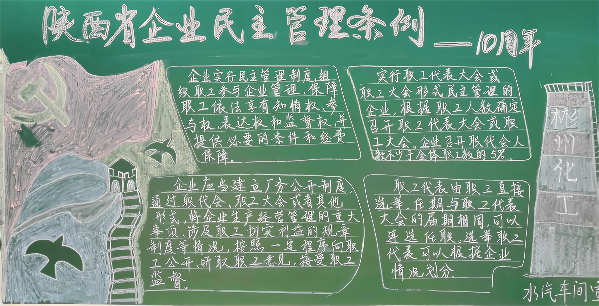 陕西省企业民主管理条例
—10周年
企业实行民主管理制度,组
织职工参与企业管理,保障
职工依法享有知情权、参
与权、表达权和监督权,并
提供必要的条件和经费
保障。
实行职工代表大会或
职工大会形式民主管理的
企业,根据职工人数确定
召开职工代表大会或职
工大会。企业召开职代会人
数不少于全体职工数的5%
企业应当建立厂务公开制度
通过职代会、职工大会或者其他
形式,将企业生产经营管理的重大
事项、涉及职工切实利益的规章
制度等情况,按照一定程序向职
工公开,听取职工意见,接受职工
监督
职工代表由职工直接
选举,任期与职工代表
大会的届期相同,可以
连选任职,选举职工
代表可以根据企业
情况划分
彬州化工
水汽车间宣